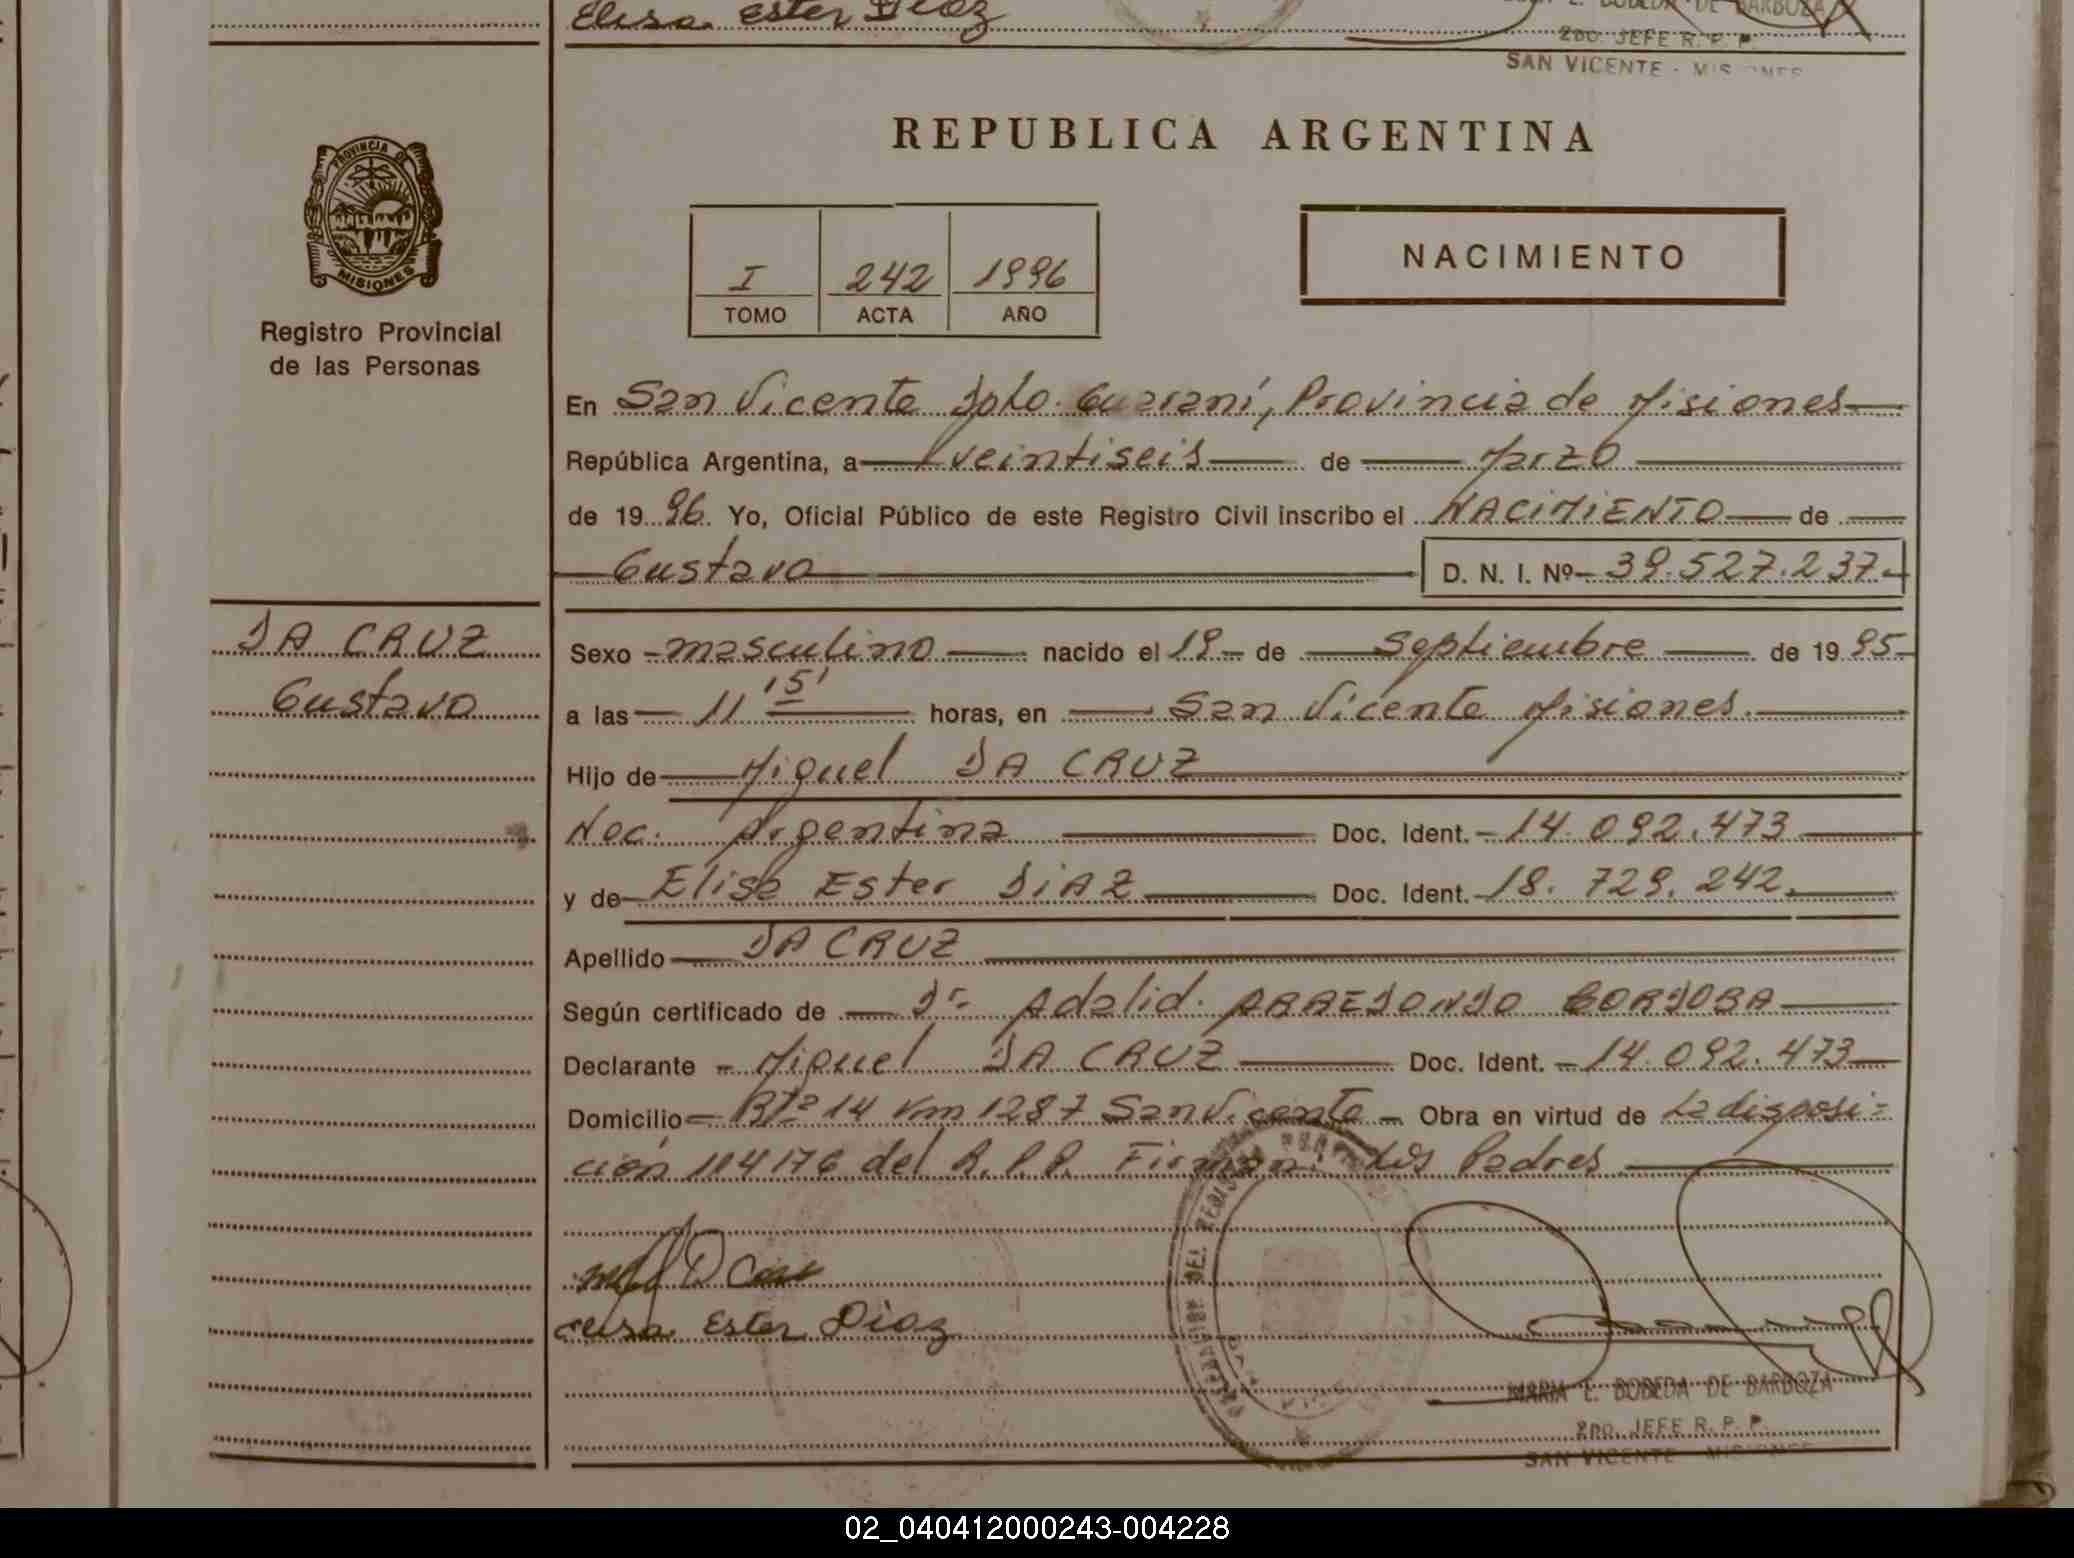 Elisa Ester Diaz
DE BARBOZA
2DO. JEFE R. P. P.
SAN VICENTE - MISIONES
PROVINCIA DE
MISIONES
Registro Provincial
de las Personas
REPUBLICA ARGENTINA
I 242 1996
TOMO ACTA AÑO
NACIMIENTO
En San Vicente Dpto. Guaraní, Provincia de Misiones
República Argentina, a veintiseis de Marzo
de 1996. Yo, Oficial Público de este Registro Civil inscribo el NACIMIENTO de
Gustavo D. N. I. Nº 39.527.237.-
DA CRUZ
Gustavo
Sexo - masculino nacido el 19 de Septiembre de 1995
a las 11 15' horas, en San Vicente Misiones.
Hijo de Miguel DA CRUZ
Nac. Argentina Doc. Ident. - 14.092.473
y de Elisa Ester DIAZ Doc. Ident. 18.729.242.
Apellido DA CRUZ
Según certificado de Dr. Adalid ARREDONDO CORDOBA
Declarante - Miguel DA CRUZ Doc. Ident. - 14.092.473
Domicilio - Rta 14 Km 1287 San Vicente - Obra en virtud de La disposi-
ción 114176 del R.P.P. Firman: Los Padres
Elisa Ester Diaz
MARIA E. BOBEDA DE BARBOZA
2DO. JEFE R. P. P.
SAN VICENTE MISIONES
02_040412000243-004228